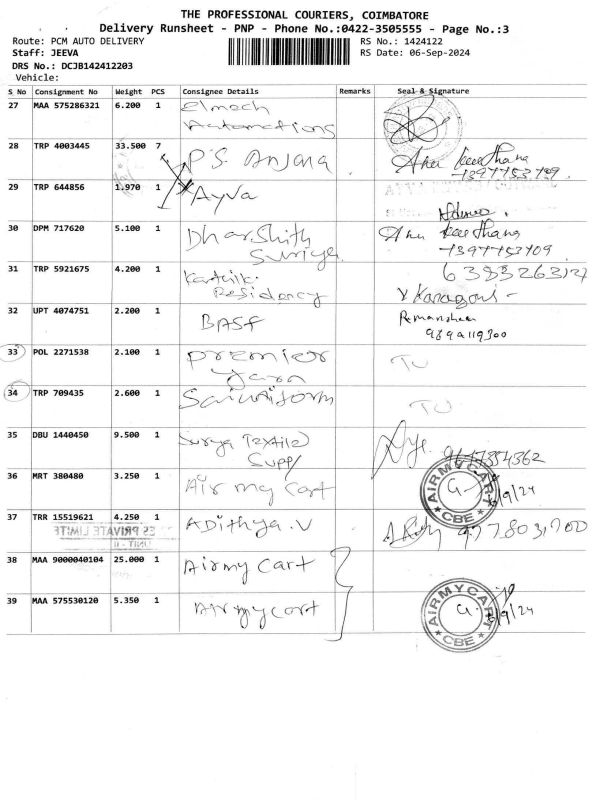 THE PROFESSIONAL COURIERS, COIMBATORE
Delivery Runsheet - PNP - Phone No.:0422-3505555 - Page No.:3
Route: PCM AUTO DELIVERY
RS No.: 1424122
Staff: JEEVA
RS Date: 06-Sep-2024
DRS No.: DCJB142412203
Vehicle:
S No Consignment No Weight PCS Consignee Details Remarks Seal & Signature
27 MAA 575286321 6.200 1 elmech
Automations
28 TRP 4003445 33.500 7 P.S. Anjana
29 TRP 644856 1.970 1 Ayva
30 DPM 717620 5.100 1 Dharshith
Suriya
31 TRP 5921675 4.200 1 Karthik.
Residency
6383263127
32 UPT 4074751 2.200 1 BASF
9894119300
33 POL 2271538 2.100 1 premier
yarn
TU
34 TRP 709435 2.600 1
TU
35 DBU 1440450 9.500 1 Surya Textile
Supp/
36 MRT 380480 3.250 1 Air my Cart
AIRMYCART
CBE
6/9/24
37 TRR 15519621 4.250 1 Adithya.V
ES PRIVATE LIMITE
UNIT - II
38 MAA 9000040104 25.000 1 Airmy Cart
39 MAA 575530120 5.350 1 Air my cart
AIRMYCART
CBE
6/9/24